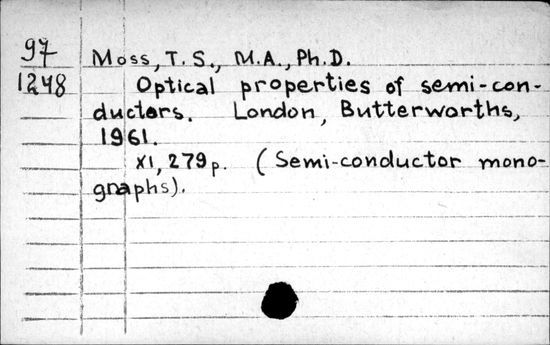 97
1248
Moss, T. S., M.A., Ph.D.
Optical properties of semi-con-
ductors. London, Butterworths,
1961.
XI, 279 p. (Semi-conductor mono-
graphs).